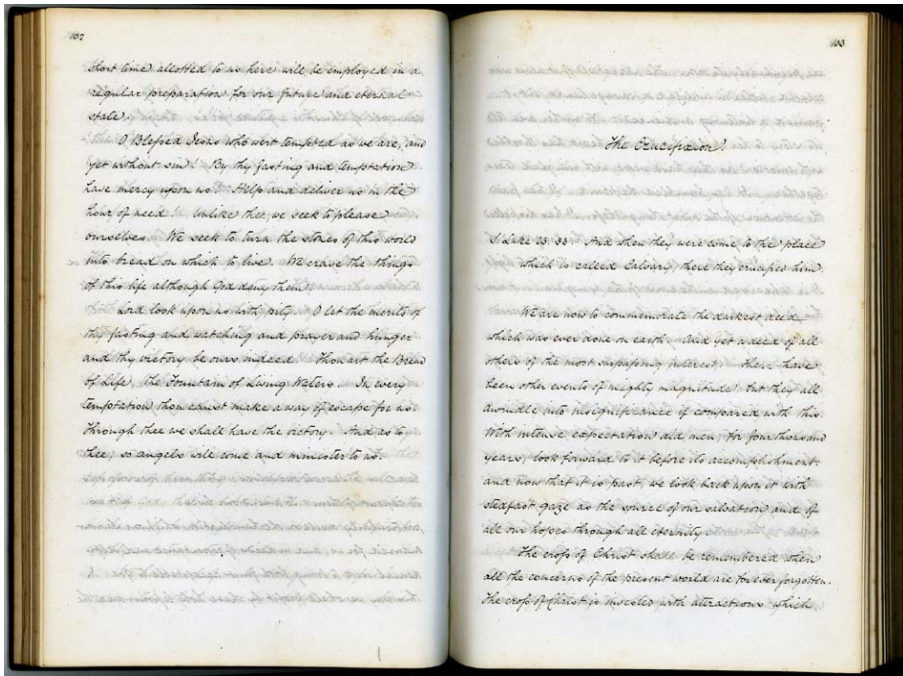 102
short time allotted to us here will be employed in a
regular preparation for our future and eternal
state.
O Blessed Jesus who wert tempted as we are, and
yet without sin! By thy fasting and temptation
have mercy upon us! Help and deliver us in the
hour of need! Unlike thee, we seek to please
ourselves. We seek to turn the stones of this world
into bread on which to live. We crave the things
of this life although God deny them.
Lord look upon us with pity. O let the merits of
thy fasting and watching and prayer and hunger
and thy victory be ours indeed. Thou art the Bread
of Life, the Fountain of Living Waters. In every
temptation thou canst make a way of escape for us.
Through thee we shall have the victory. And as to
thee, so angels will come and minister to us.
103
The Crucifixion!
St Luke 23. 33. And when they were come to the place
which is called Calvary, there they crucified him.
We are now to commemorate the darkest deed
which was ever done on earth. And yet a deed of all
others of the most surpassing interest. There have
been other events of mighty magnitude: but they all
dwindle into insignificance if compared with this.
With intense expectation did men, for four thousand
years, look forward to it before its accomplishment:
and now that it is past, we look back upon it with
steadfast gaze as the source of our salvation and of
all our hopes through all eternity.
The cross of Christ shall be remembered when
all the concerns of the present world are for ever forgotten.
The cross of Christ is invested with attractions which